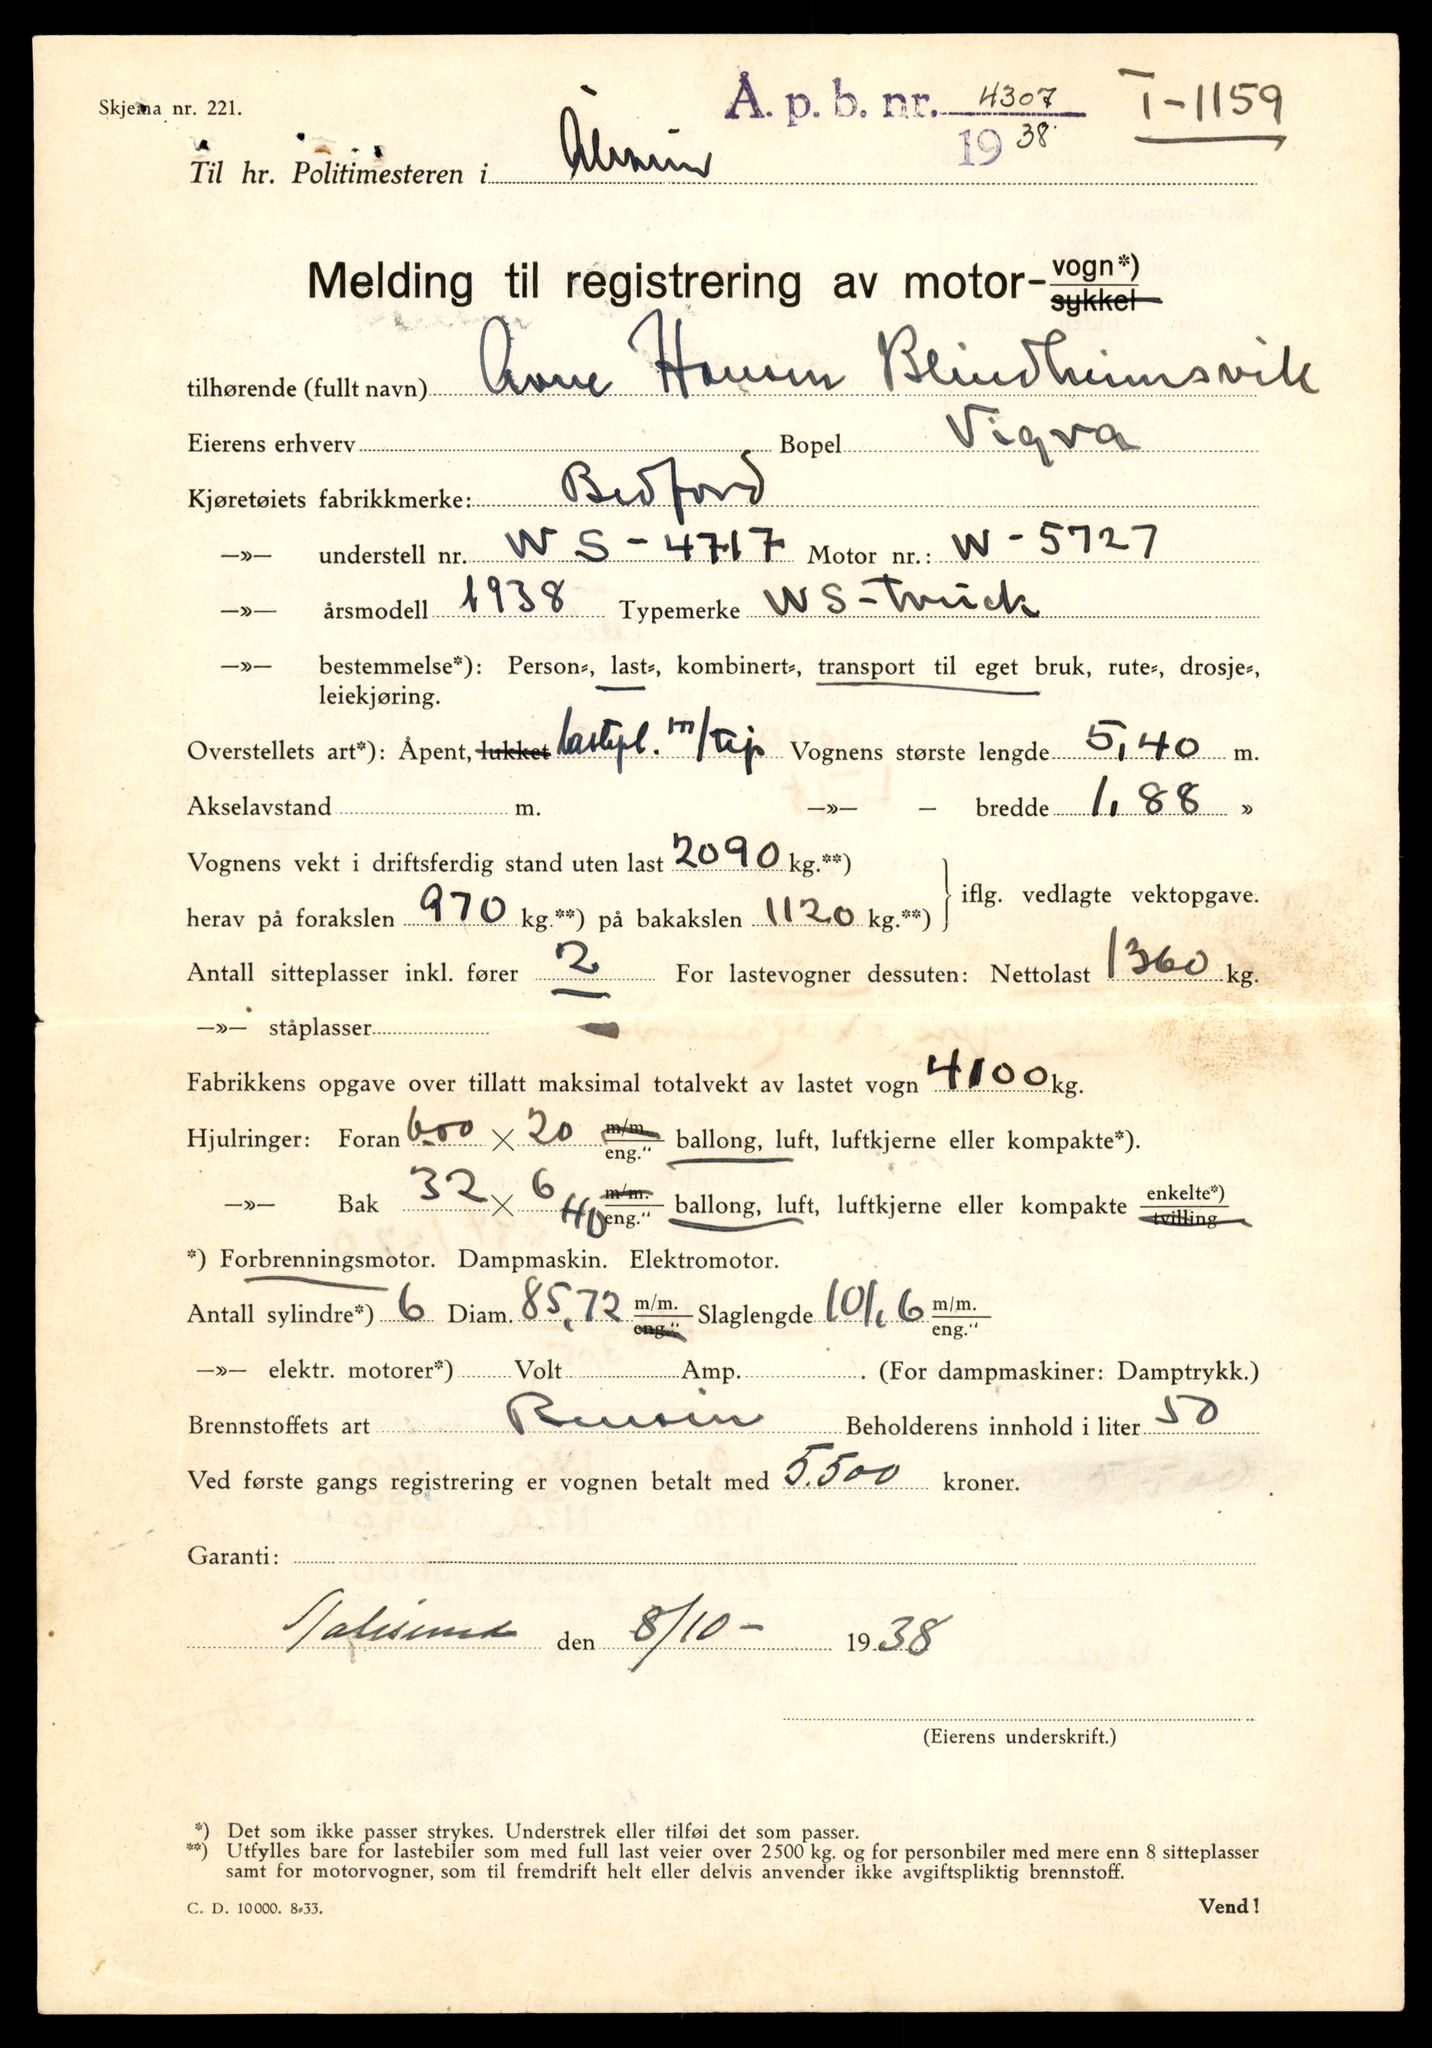 Skjema nr. 221.
Å. p. b. nr. 4307
19 38.
T-1159
Til hr. Politimesteren i Ålesund
Melding til registrering av motor- vogn*)
sykkel
tilhørende (fullt navn) Arne Hansen Blindheimsvik
Eierens erhverv Bopel Vigra
Kjøretøiets fabrikkmerke: Bedford
—»— understell nr. WS-4717 Motor nr.: W-5727
—»— årsmodell 1938 Typemerke WS-truck
—»— bestemmelse*): Person-, last-, kombinert-, transport til eget bruk, rute-, drosje-,
leiekjøring.
Overstellets art*): Åpent, lukket lastepl. m/tip Vognens største lengde 5,40 m.
Akselavstand m. —»— – bredde 1,88 »
Vognens vekt i driftsferdig stand uten last 2090 kg.**)
herav på forakslen 970 kg.**) på bakakslen 1120 kg.**) iflg. vedlagte vektopgave.
Antall sitteplasser inkl. fører 2 For lastevogner dessuten: Nettolast 1360 kg.
—»— ståplasser
Fabrikkens opgave over tillatt maksimal totalvekt av lastet vogn 4100 kg.
Hjulringer: Foran 600 × 20 m/m. eng." ballong, luft, luftkjerne eller kompakte*).
—»— Bak 32 × 6 HD m/m. eng." ballong, luft, luftkjerne eller kompakte enkelte*) tvilling
*) Forbrenningsmotor. Dampmaskin. Elektromotor.
Antall sylindre*) 6 Diam. 85,72 m/m. eng." Slaglengde 101,6 m/m. eng."
—»— elektr. motorer*) Volt Amp. . (For dampmaskiner: Damptrykk.)
Brennstoffets art Bensin Beholderens innhold i liter 50
Ved første gangs registrering er vognen betalt med 5.500 kroner.
Garanti:
den 8/10 - 1938
(Eierens underskrift.)
*) Det som ikke passer strykes. Understrek eller tilføi det som passer.
**) Utfylles bare for lastebiler som med full last veier over 2500 kg. og for personbiler med mere enn 8 sitteplasser
samt for motorvogner, som til fremdrift helt eller delvis anvender ikke avgiftspliktig brennstoff.
C. D. 10000. 8-33.
Vend!